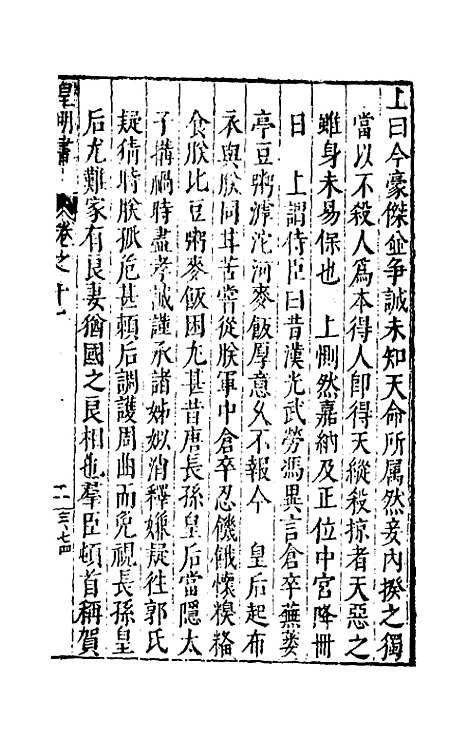 上曰今豪傑並爭誠未知天命所属然妾內揆之獨
當以不殺人爲本得人卽得天縱殺掠者天惡之
雖身未易保也　上惻然嘉納及正位中宮降冊
日　上謂侍臣曰昔漢光武勞馮異言倉卒蕪蔞
亭豆粥滹沱河麥飯厚意乆不報今　皇后起布
衣與朕同甘苦嘗從朕軍中倉卒忍饑餓懷糗糒
食朕比豆粥麥飯困尤甚昔唐長孫皇后當隱太
子搆禍時盡孝誠謹承諸姊姒消釋嫌疑往郭氏
疑猜時朕孤危甚賴后調護周曲而免視長孫皇
后尤難家有良妻猶國之良相也羣臣頓首稱賀
皇明書　卷之十一